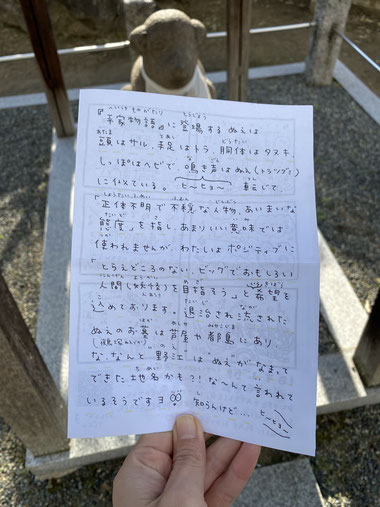 『平家物語』に登場するぬえは
頭はサル、手足はトラ、胴体はタヌキ
しっぽはヘビで 鳴き声はぬえ(トラツグミ)
に似ている。ヒーヒョー 転じて、
「正体不明で不穏な人物、あいまいな
態度」を指し、あまりいい意味では
使われませんが、わたしはポジティブに
「とらえどころのない、ビッグでおもしろい
人間(妖怪)を目指そう」と希望を
込めております。退治され流された
ぬえのお墓は芦屋や都島にあり、
な、なんと 野江は"ぬえ"がなまって
できた地名かも?!な〜んて言われて
いるそうですヨ!! 知らんけど…
ヒーヒョー